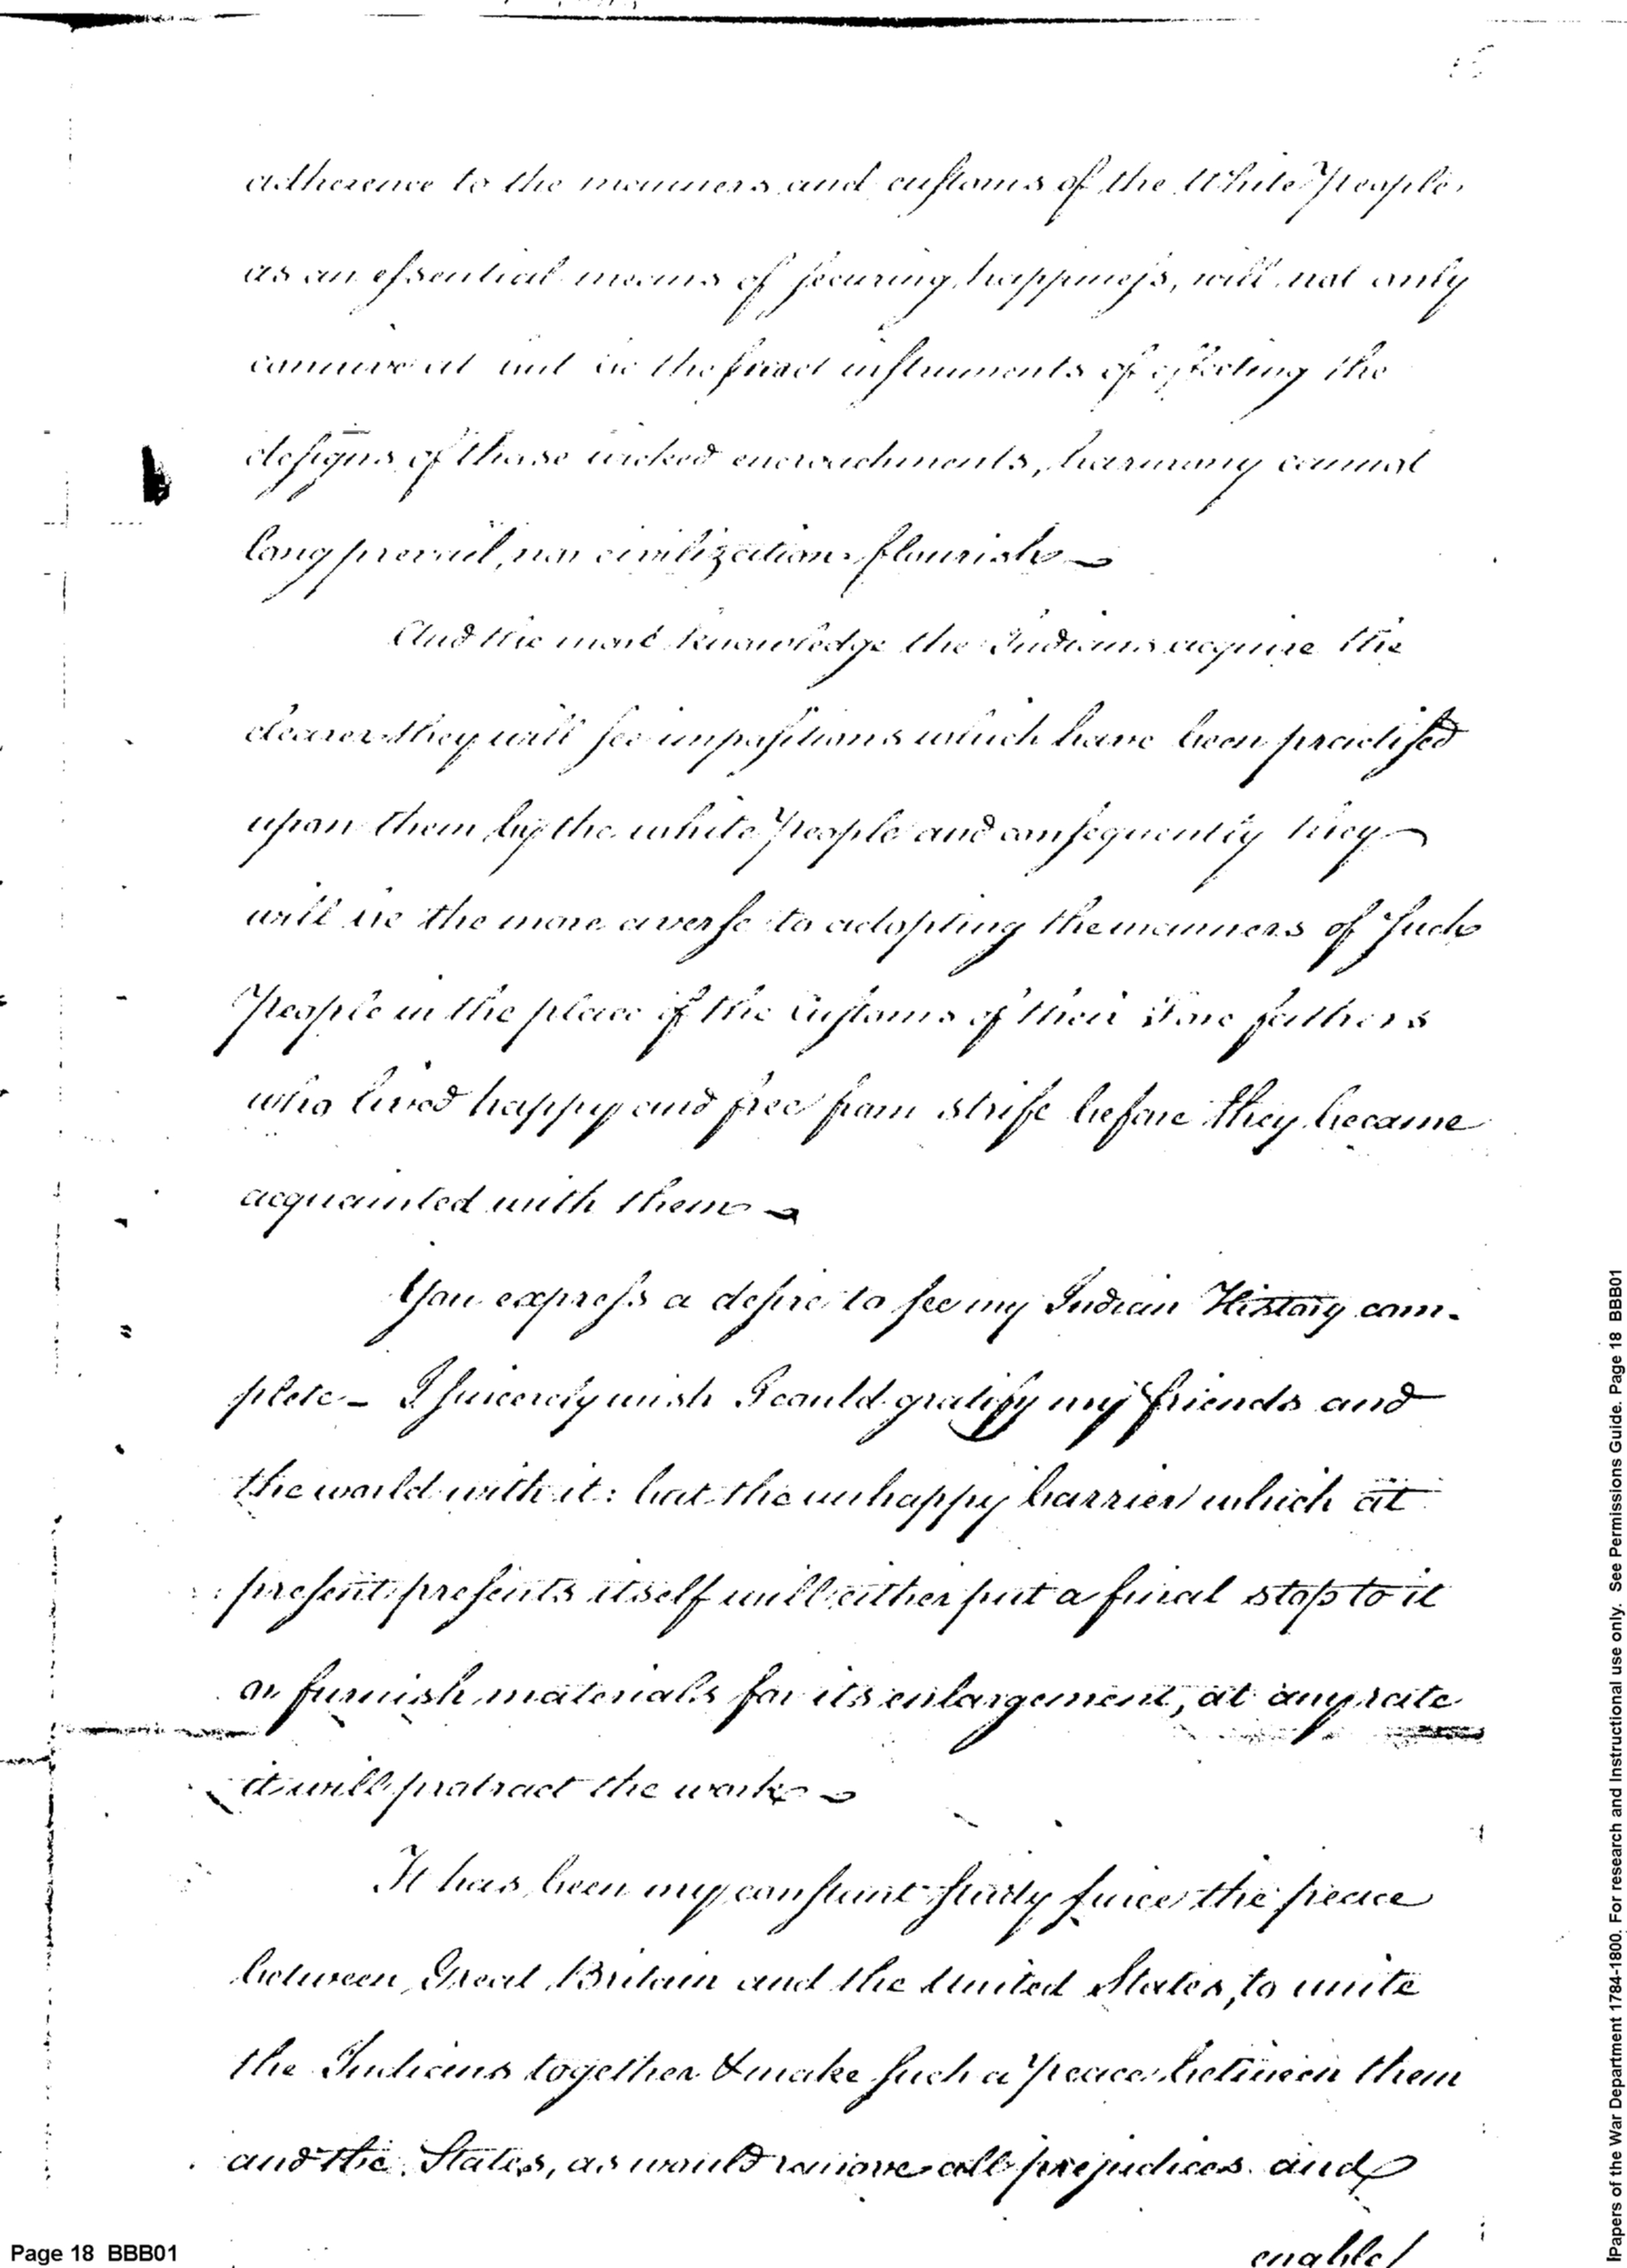 adherence to the manners and customs of the White People,
as an essential means of securing happiness, will not only
connive at but be the exact instruments of effecting the
designs of those wicked encroachments, harmony cannot
long prevail, nor civilization flourish—
And the more knowledge the Indians acquire the
clearer they will see impositions which have been practised
upon them by the white People and consequently they
will be the more averse to adopting the manners of such
People in the place of the Customs of their Fore fathers
who lived happy and free from strife before they became
acquainted with them—
You express a desire to see my Indian History com-
plete— I sincerely wish I could gratify my friends and
the world with it: but the unhappy barrier which at
present presents itself will either put a final stop to it
or furnish materials for its enlargement, at any rate
it will protract the work—
It has been my constant study since the peace
between Great Britain and the United States, to unite
the Indians together & make such a Peace between them
and the States, as would remove all prejudices and
enable/
Page 18 BBB01
Papers of the War Department 1784-1800. For research and Instructional use only. See Permissions Guide. Page 18 BBB01